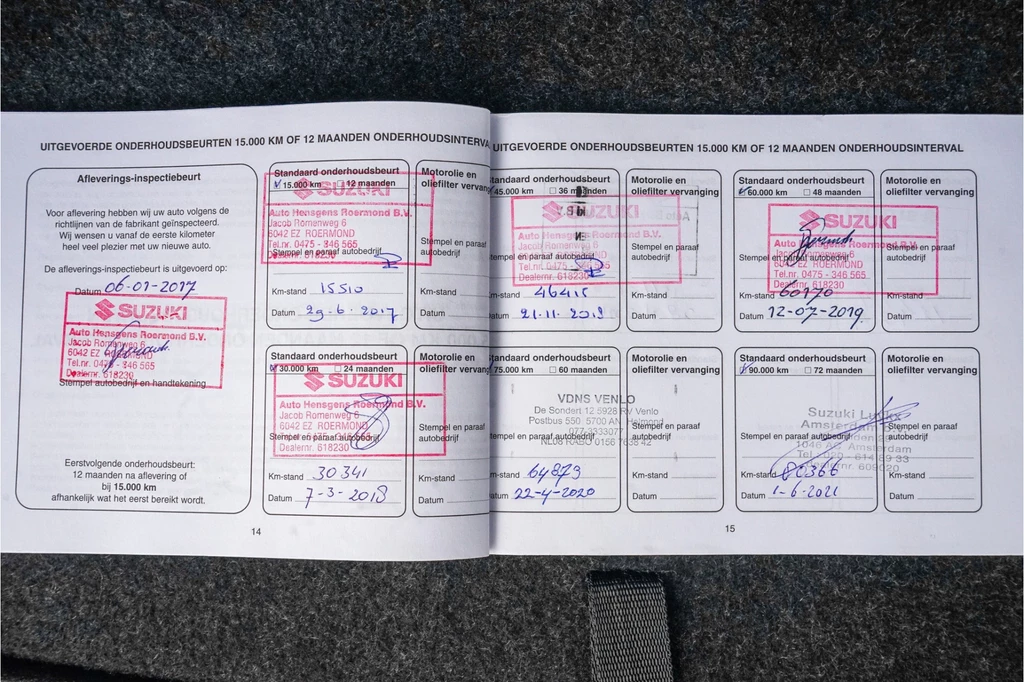 UITGEVOERDE ONDERHOUDSBEURTEN 15.000 KM OF 12 MAANDEN ONDERHOUDSINTERVA
Afleverings-inspectiebeurt
Voor aflevering hebben wij uw auto volgens de
richtlijnen van de fabrikant geïnspecteerd.
Wij wensen u vanaf de eerste kilometer
heel veel plezier met uw nieuwe auto.
De afleverings-inspectiebeurt is uitgevoerd op:
Datum 06-01-2017
SUZUKI
Auto Hensgens Roermond B.V.
Jacob Romenweg 6
6042 EZ ROERMOND
Tel.nr. 0475 - 346 565
Dealernr. 618230
Stempel autobedrijf en handtekening
Eerstvolgende onderhoudsbeurt:
12 maanden na aflevering of
bij 15.000 km
afhankelijk wat het eerst bereikt wordt.
Standaard onderhoudsbeurt
15.000 km 12 maanden
SUZUKI
Auto Hensgens Roermond B.V.
Jacob Romenweg 6
6042 EZ ROERMOND
Tel.nr. 0475 - 346 565
Stempel en paraaf autobedrijf
Dealernr. 618230
Km-stand 15510
Datum 29-6-2017
Motorolie en
oliefilter vervang
Stempel en paraaf
autobedrijf
Km-stand
Datum
Standaard onderhoudsbeurt
30.000 km 24 maanden
SUZUKI
Auto Hensgens Roermond B.V.
Jacob Romenweg 6
6042 EZ ROERMOND
Stempel en paraaf autobedrijf
Dealernr. 618230
Km-stand 30341
Datum 7-3-2018
Motorolie en
oliefilter vervang
Stempel en paraaf
autobedrijf
Km-stand
Datum
14
UITGEVOERDE ONDERHOUDSBEURTEN 15.000 KM OF 12 MAANDEN ONDERHOUDSINTERVAL
tandaard onderhoudsbeurt
45.000 km 36 maanden
SUZUKI
Auto Hensgens Roermond B.V.
Jacob Romenweg 6
6042 EZ ROERMOND
tempel en paraaf autobedrijf
Tel.nr. 0475 - 346 565
Dealernr. 618230
m-stand 46415
Datum 21-11-2018
Motorolie en
oliefilter vervanging
Stempel en paraaf
autobedrijf
Km-stand
Datum
Standaard onderhoudsbeurt
60.000 km 48 maanden
SUZUKI
Auto Hensgens Roermond B.V.
Jacob Romenweg 6
6042 EZ ROERMOND
Stempel en paraaf autobedrijf
Tel.nr. 0475 - 346 565
Dealernr. 618230
Km-stand 60170
Datum 12-07-2019
Motorolie en
oliefilter vervanging
Stempel en paraaf
autobedrijf
Km-stand
Datum
tandaard onderhoudsbeurt
75.000 km 60 maanden
VDNS VENLO
De Sondert 12 5928 RV Venlo
Postbus 550 5700 AN Helmond
077-3333077
tempel en paraaf autobedrijf
m-stand 64873
Datum 22-4-2020
Motorolie en
oliefilter vervanging
Stempel en paraaf
autobedrijf
Km-stand
Datum
Standaard onderhoudsbeurt
90.000 km 72 maanden
Suzuki
Amsterdam
Stempel en paraaf autobedrijf
Amsterdam
Km-stand 80366
Datum 1-6-2021
Motorolie en
oliefilter vervanging
Stempel en paraaf
autobedrijf
Km-stand
Datum
15